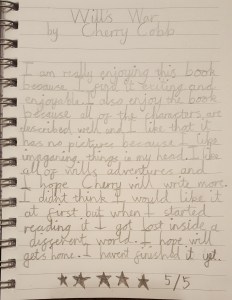 Wills War
by Cherry Cobb
I am really enjoying this book
because I find it exciting and
enjoyable. I also enjoy the book
because all of the characters are
described well and I like that it
has no pictures because I like
imagening things in my head. I like
all of wills adventures and
I hope Cherry will write more.
I didnt think I would like it
at first but when I started
reading it I got lost inside a
different world. I hope will
gets home. I havent finished it yet.
★★★★★ 5/5